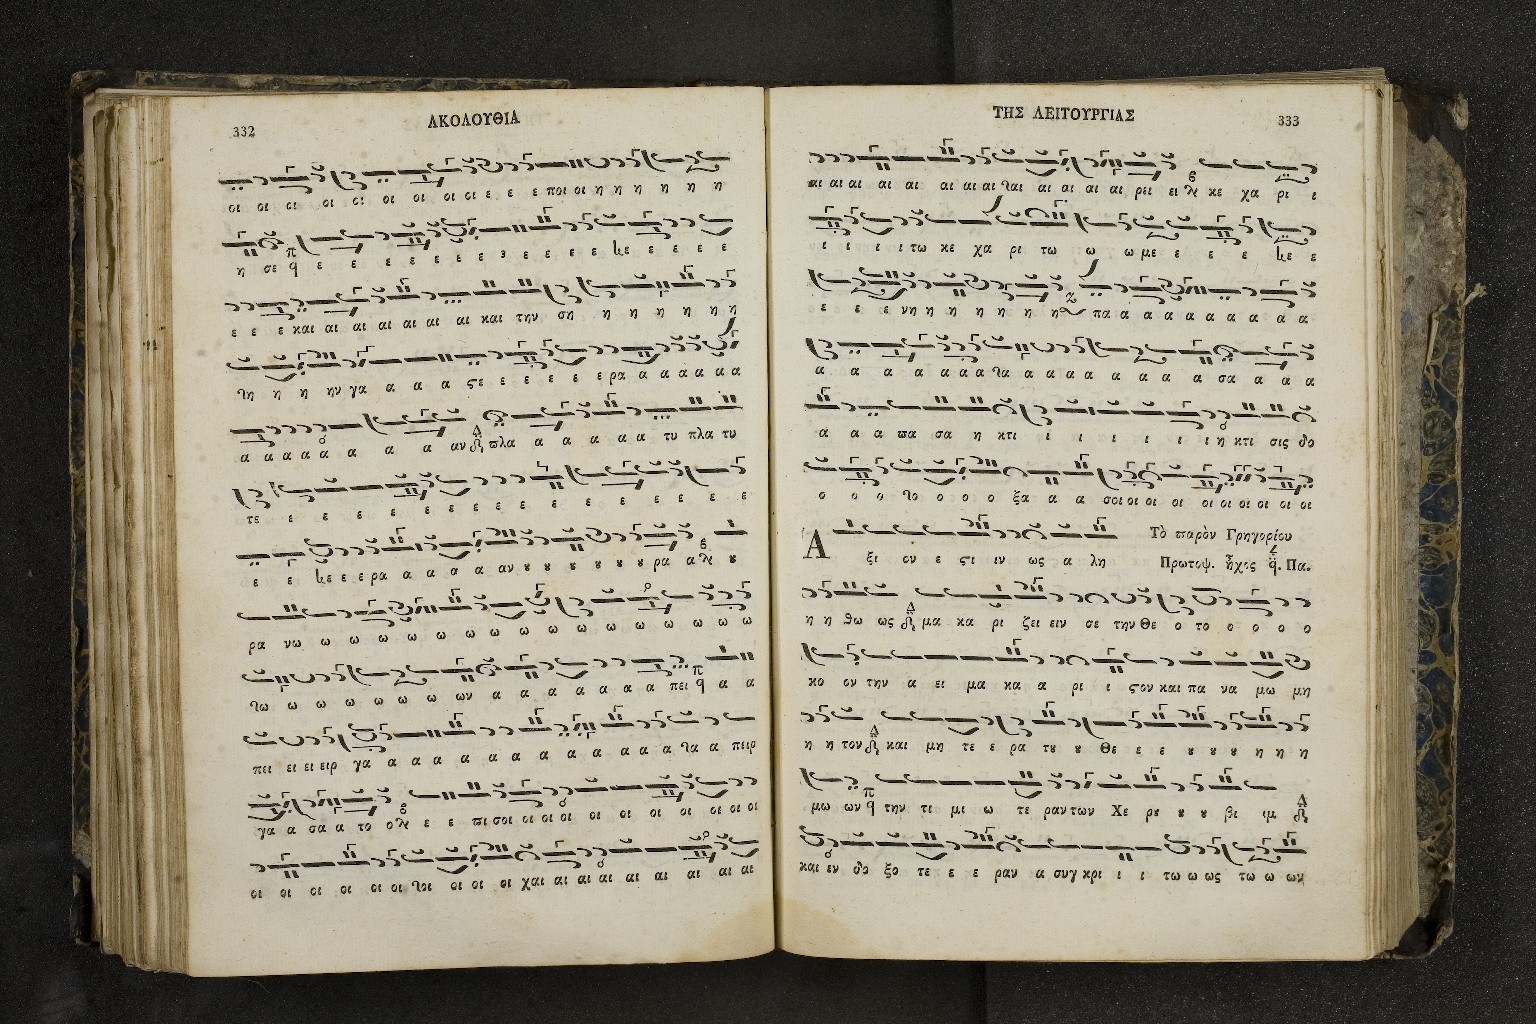 332
ΑΚΟΛΟΥΘΙΑ
οι οι οι οι οι οι οι οι οι ε ε ε ποι οι η η η η η η
η σε ε ε ε ε ε ε ε ε ε ε ε ε ε ε ε ε
ε ε ε και αι αι αι αι αι αι και την ση η η η η η
τη η η ην γα α α α ςε ε ε ε ε ε ρα α α α α α
α α α α α α α α αν ϖλα α α α α α τυ πλα τυ
τε ε ε ε ε ε ε ε ε ε ε ε ε ε ε ε
ε ε ε ε ρα α α α α αν ȣ ȣ ȣ ȣ ȣ ȣ ρα α ȣ
ρα νω ω ω ω ω ω ω ω ω ω ω ω ω ω ω
τω ω ω ω ω ω ω ων α α α α α α α πει α α
πει ει ει ειρ γα α α α α α α α α α α α τα α πειρ
γα α σα α το ο ε ε ϖι σοι οι οι οι οι οι οι οι οι οι οι
οι οι οι οι οι οι τοι οι οι οι χαι αι αι αι αι αι αι αι αι
ΤΗΣ ΛΕΙΤΟΥΡΓΙΑΣ
333
αι αι αι αι αι αι αι αι ται αι αι αι αι ρει ει κε χα ρι ι
ι ι ι ι τω κε χα ρι τω ω ω με ε ε ε ε ε
ε ε ε νη η η η η η η πα α α α α α α α α α
α α α α α α α τα α α α α α α α σα α α α
α α α ϖα σα η κτι ι ι ι ι ι ι η κτι σις ο
ο ο ο το ο ο ο ξα α α σοι οι οι οι οι οι οι οι οι οι
Α ξι ον ε ςι ιν ως α λη
Τὸ ϖαρὸν Γρηγορίου
Πρωτοψ. ἦχος Πα.
η η θω ως μα κα ρι ζει ειν σε την Θε ο το ο ο ο ο
κο ον την α ει μα κα α ρι ι ςον και πα να μω μη
η η τον και μη τε ε ρα τȣ ȣ Θε ε ε ȣ ȣ ȣ η η η
μω ων την τι μι ω τε ραν των Χε ρȣ ȣ ȣ βι ιμ
και εν δο ξο τε ε ε ραν α συγ κρι ι ι τω ω ως τω ω ων